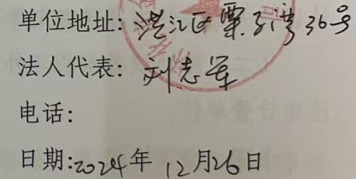 单位地址:洪江区粟子湾36号
法人代表:刘志军
电话:
日期:2024年12月26日